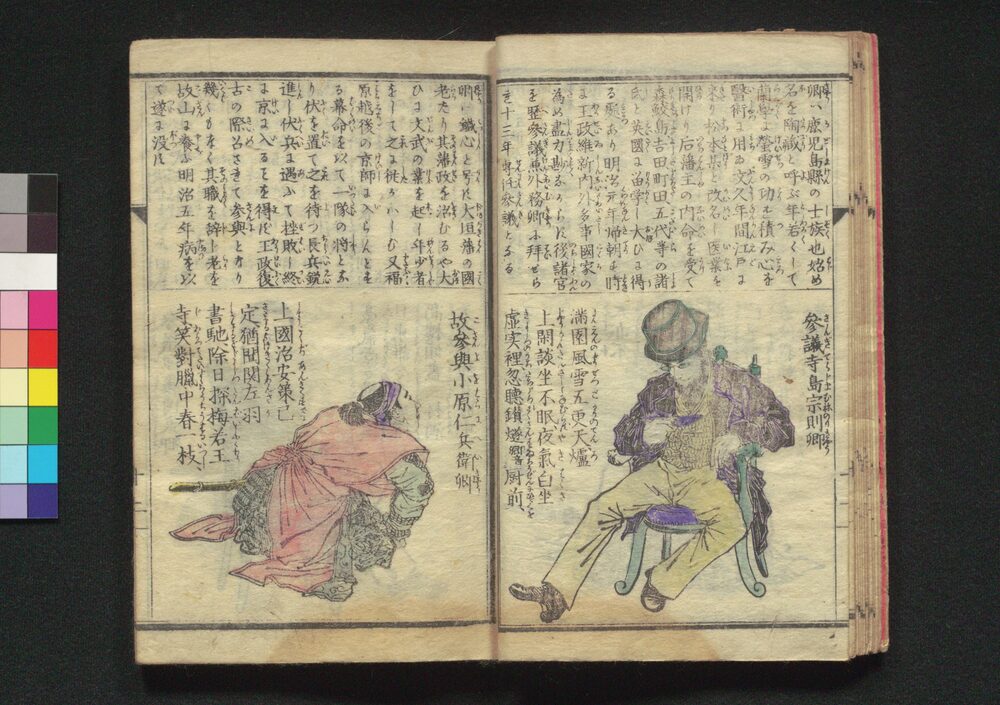 卿ハ鹿児島縣の士族也始め
名を陶藏と呼ぶ年若くして
蘭學に螢雪の功を積み心を
醫術に用お文久年間江戸に
來り松木某と改名し医業を
開けり后藩王の内命を受て
森鮫島吉田町田五代等の諸
氏と英國に留學し大ひに得
る處あり明治元年帰朝の時
に王政維新内外多事國家の
為め盡力尠なからに後諸官
を歴參議兼外務卿に拜せら
十三年専任參議となる
參議寺島宗則卿
滿園風雪五更天爐
上閑談坐不眠夜氣白坐
虚実裡忽聴鎖燧響厨前
卿ハ鐵心と号に大垣藩の國
老たり其藩政を治むるや大
ひに文武の業を起し年少者
をして之に從事いしむ又福
原越後の京師に入らんとす
る幕命を以て一隊の将とな
り伏を置て之を待つ長兵鋭
進し伏兵に遇ふて挫敗し終
に京に入るを得に王政復
古の際召さきて參與となり
幾くもなく其職を辞し老を
故山に養ふ明治五年病を以
て遂に没に
故參與小原仁兵衛卿
上國治安策已
定猶聞関左羽
書馳除日探梅若王
寺笑對臘中春一枝